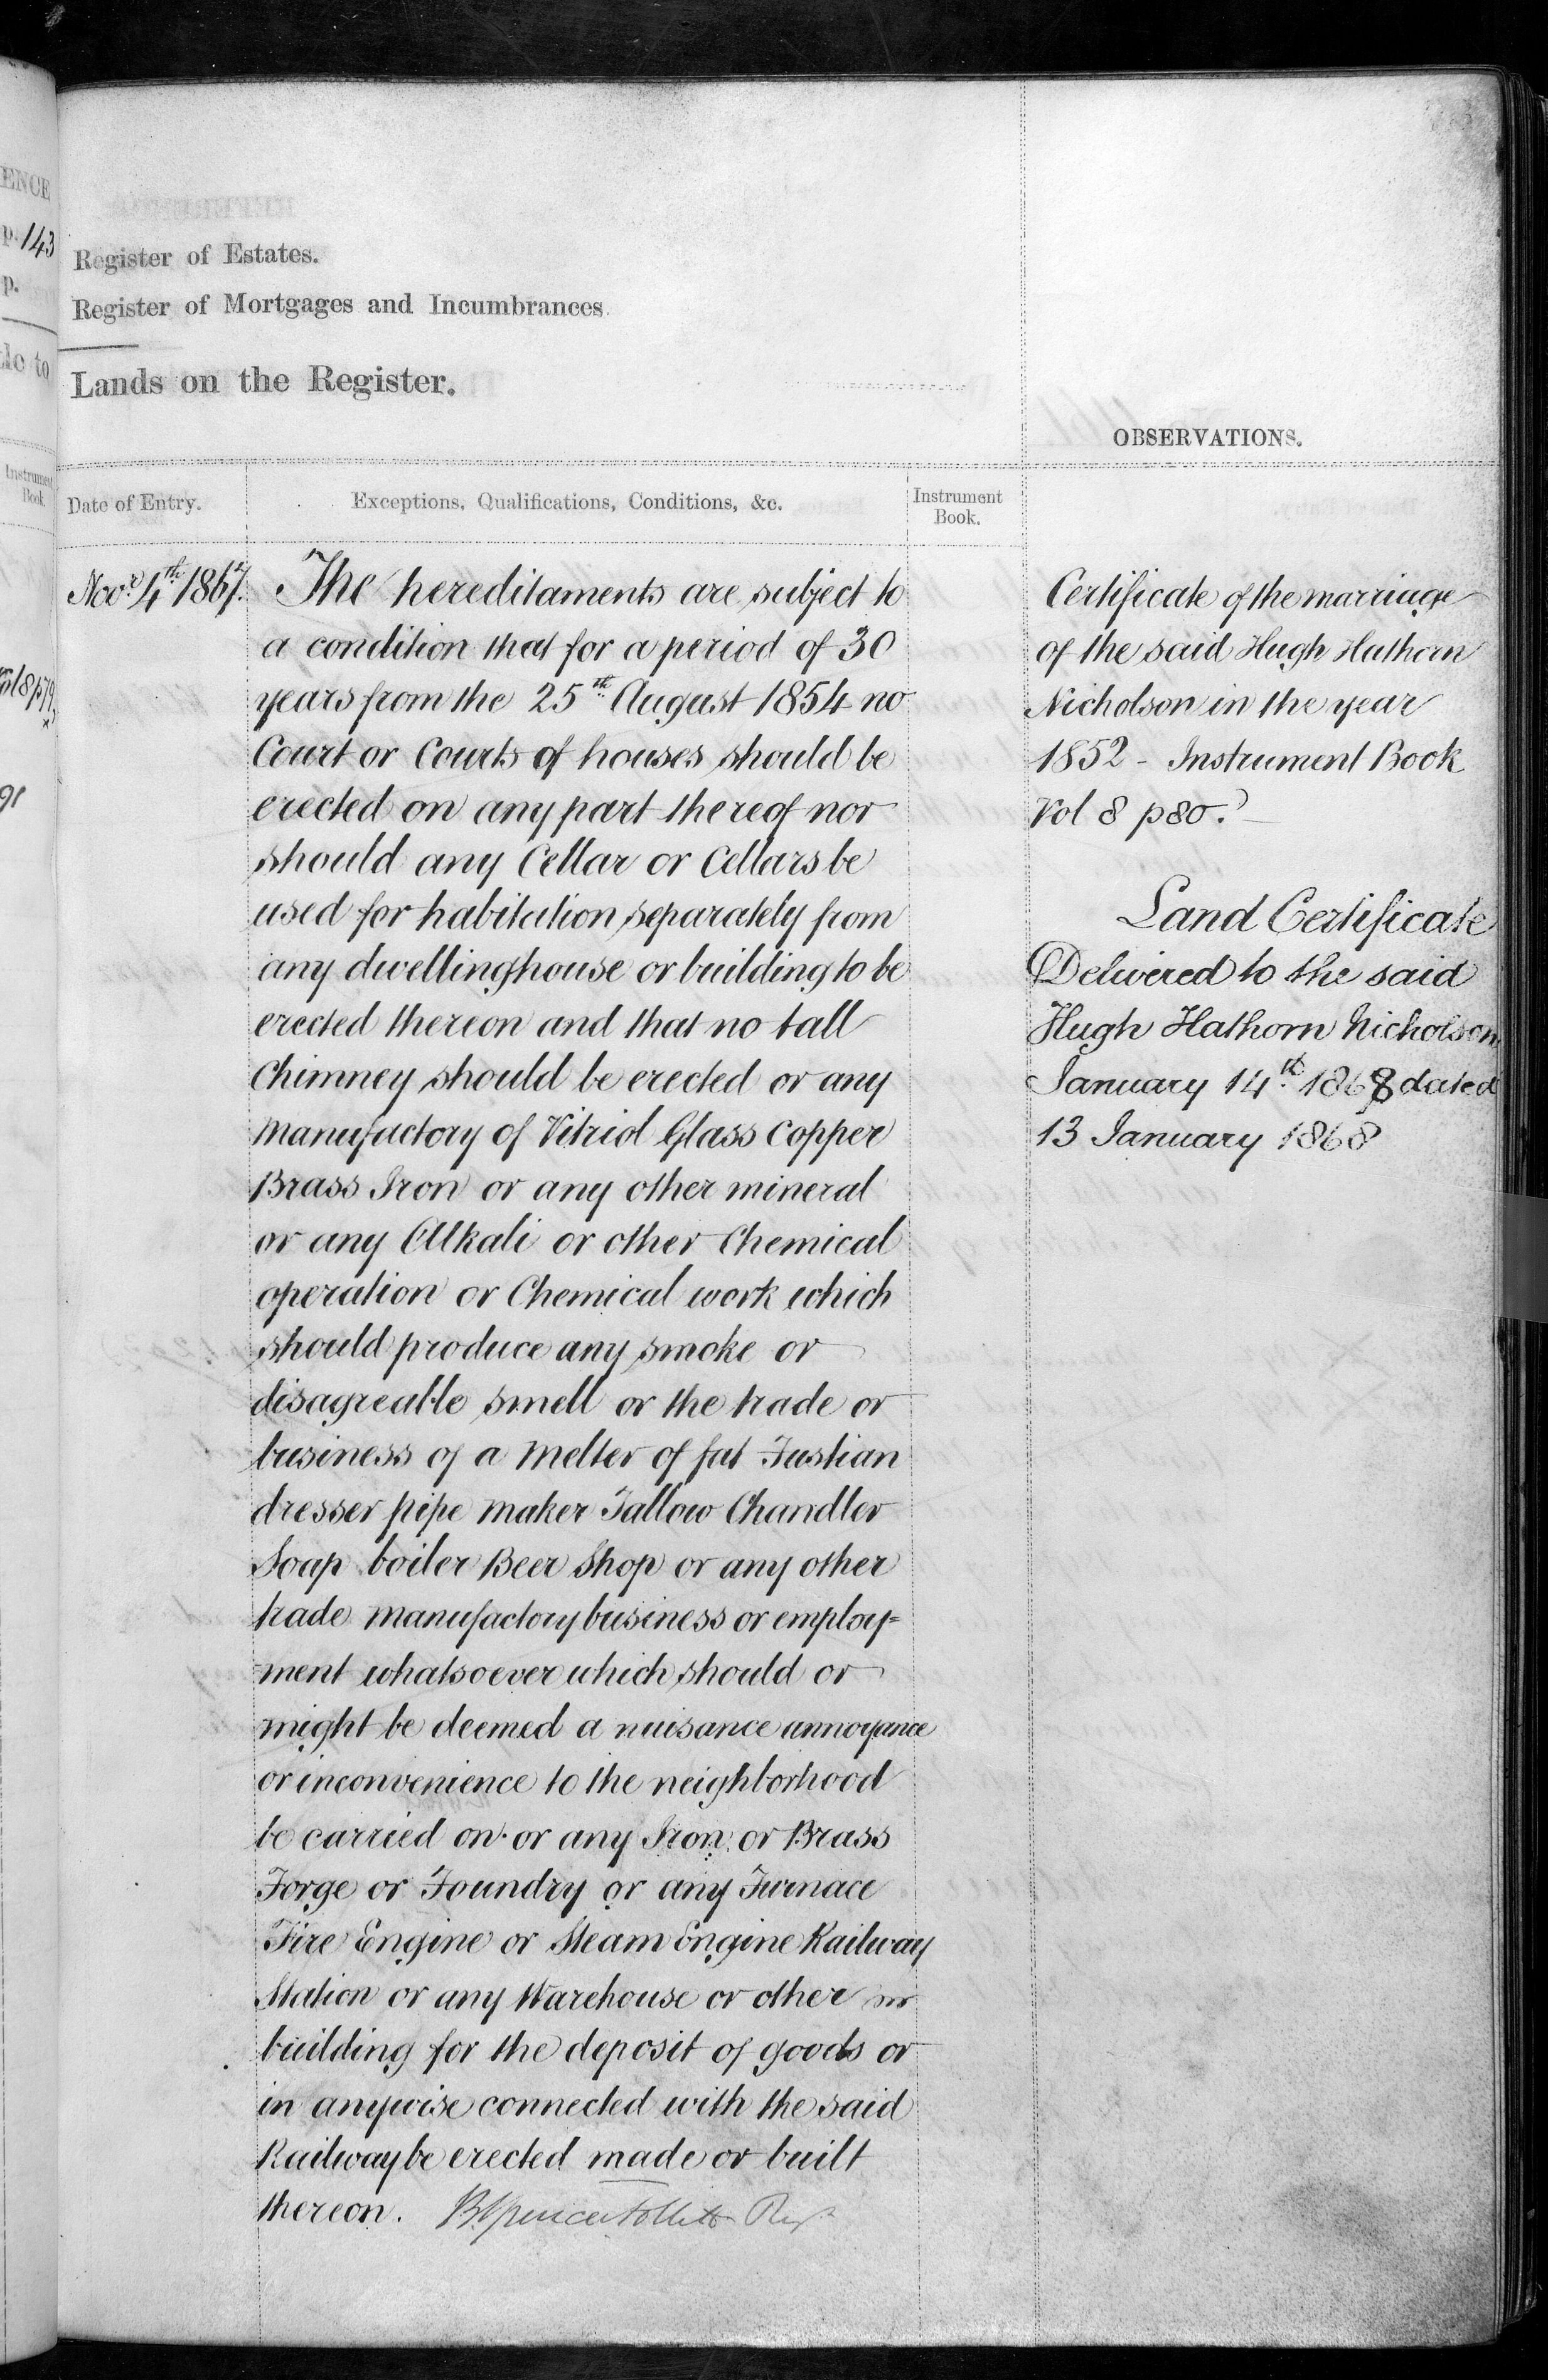 ENCE
p. 143
p.
tle to
Instrument
Book.
Vol 8 p79
91
Register of Estates.
Register of Mortgages and Incumbrances.
Lands on the Register.
OBSERVATIONS.
Date of Entry.
Exceptions, Qualifications, Conditions, &c.
Instrument
Book.
Novr. 4th 1867.
The hereditaments are subject to
a condition that for a period of 30
years from the 25th August 1854 no
Court or Courts of houses should be
erected on any part thereof nor
should any Cellar or Cellars be
used for habitation separately from
any dwellinghouse or building to be
erected thereon and that no tall
Chimney should be erected or any
manufactory of Vitriol Glass Copper
Brass Iron or any other mineral
or any Alkali or other Chemical
operation or Chemical work which
should produce any smoke or
disagreable smell or the trade or
business of a melter of fat Fustian
dresser pipe maker Tallow Chandler
Soap boiler Beer Shop or any other
trade manufactory business or employ=
ment whatsoever which should or
might be deemed a nuisance annoyance
or inconvenience to the neighborhood
be carried on or any Iron or Brass
Forge or Foundry or any Furnace
Fire Engine or Steam Engine Railway
Station or any Warehouse or other
building for the deposit of goods or
in anywise connected with the said
Railway be erected made or built
thereon. B Spencer Follett Regr
Certificate of the marriage
of the said Hugh Hathorn
Nicholson in the year
1852 - Instrument Book
Vol 8 p80.
Land Certificate
Delivered to the said
Hugh Hathorn Nicholson
January 14th 1868 dated
13 January 1868